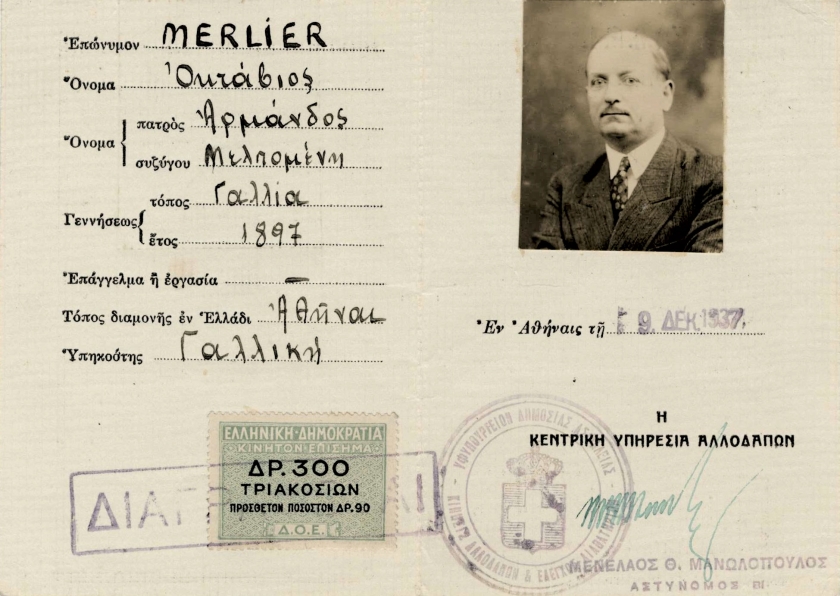 Ἐπώνυμον MERLIER
Ὄνομα Ὀκτάβιος
Ὄνομα
πατρὸς Ἀρμάνδος
συζύγου Μελπομένη
Γεννήσεως
τόπος Γαλλία
ἔτος 1897
Ἐπάγγελμα ἢ ἐργασία —
Τόπος διαμονῆς ἐν Ἑλλάδι Ἀθῆναι
Ὑπηκοότης Γαλλική
ΕΛΛΗΝΙΚΗ·ΔΗΜΟΚΡΑΤΙΑ
ΚΙΝΗΤΟΝ·ΕΠΙΣΗΜΑ
ΔΡ. 300
ΤΡΙΑΚΟΣΙΩΝ
ΠΡΟΣΘΕΤΟΝ ΠΟΣΟΣΤΟΝ ΔΡ. 90
Δ.Ο.Ε.
Ἐν Ἀθήναις τῇ 9. ΔΕΚ. 1937
Η
ΚΕΝΤΡΙΚΗ ΥΠΗΡΕΣΙΑ ΑΛΛΟΔΑΠΩΝ
ΥΦΥΠΟΥΡΓΕΙΟΝ ΔΗΜΟΣΙΑΣ ΑΣΦΑΛΕΙΑΣ
ΑΛΛΟΔΑΠΩΝ &
ΜΕΝΕΛΑΟΣ Θ. ΜΑΝΩΛΟΠΟΥΛΟΣ
ΑΣΤΥΝΟΜΟΣ